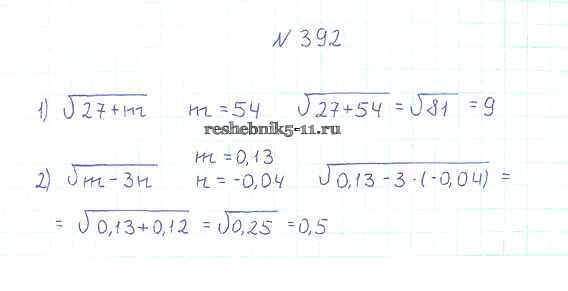 N 392
1) √27+m m = 54 √27+54 = √81 = 9
reshebnik5-11.ru
m = 0,13
2) √m - 3n n = -0,04 √0,13 - 3 · (-0,04) =
= √0,13 + 0,12 = √0,25 = 0,5